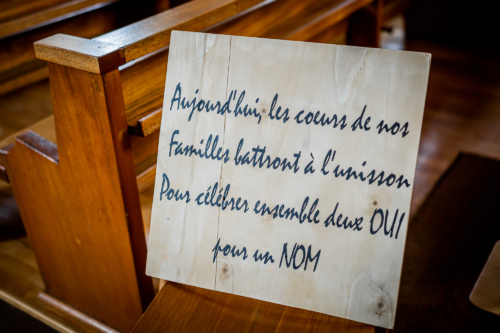 Aujourd'hui, les coeurs de nos
Familles battront à l'unisson
Pour célébrer ensemble deux OUI
pour un NOM